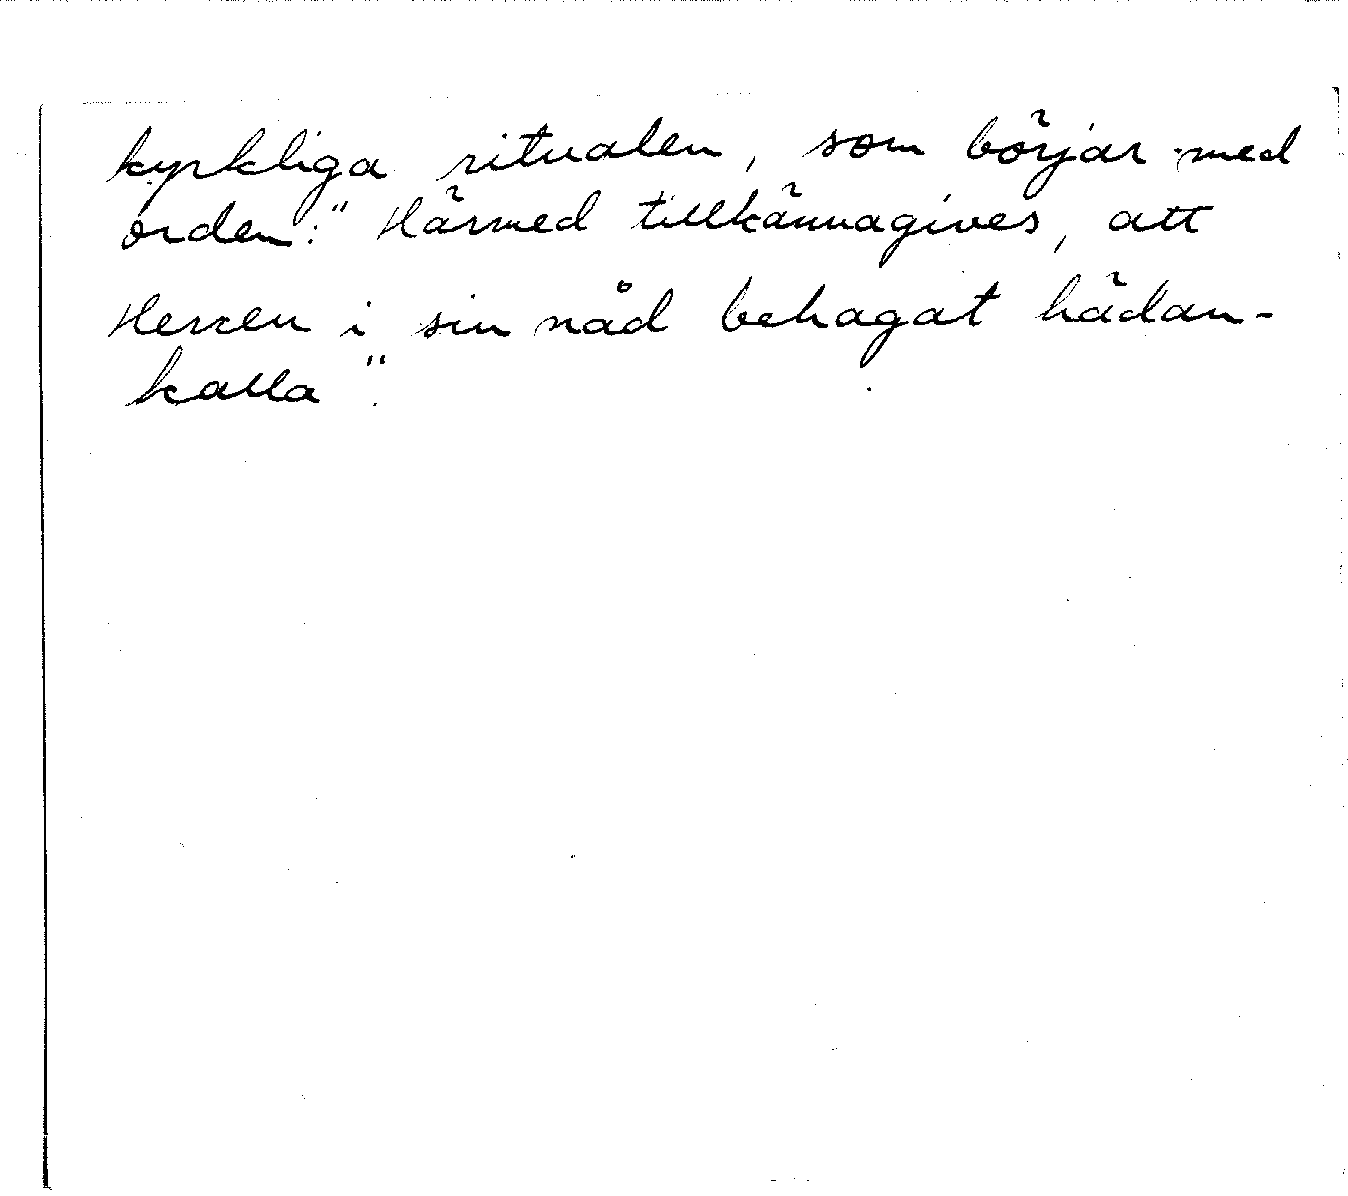 kyrkliga ritualen, som börjar med
orden: "Härmed tillkännagives, att
Herren i sin nåd behagat hädan-
kalla".